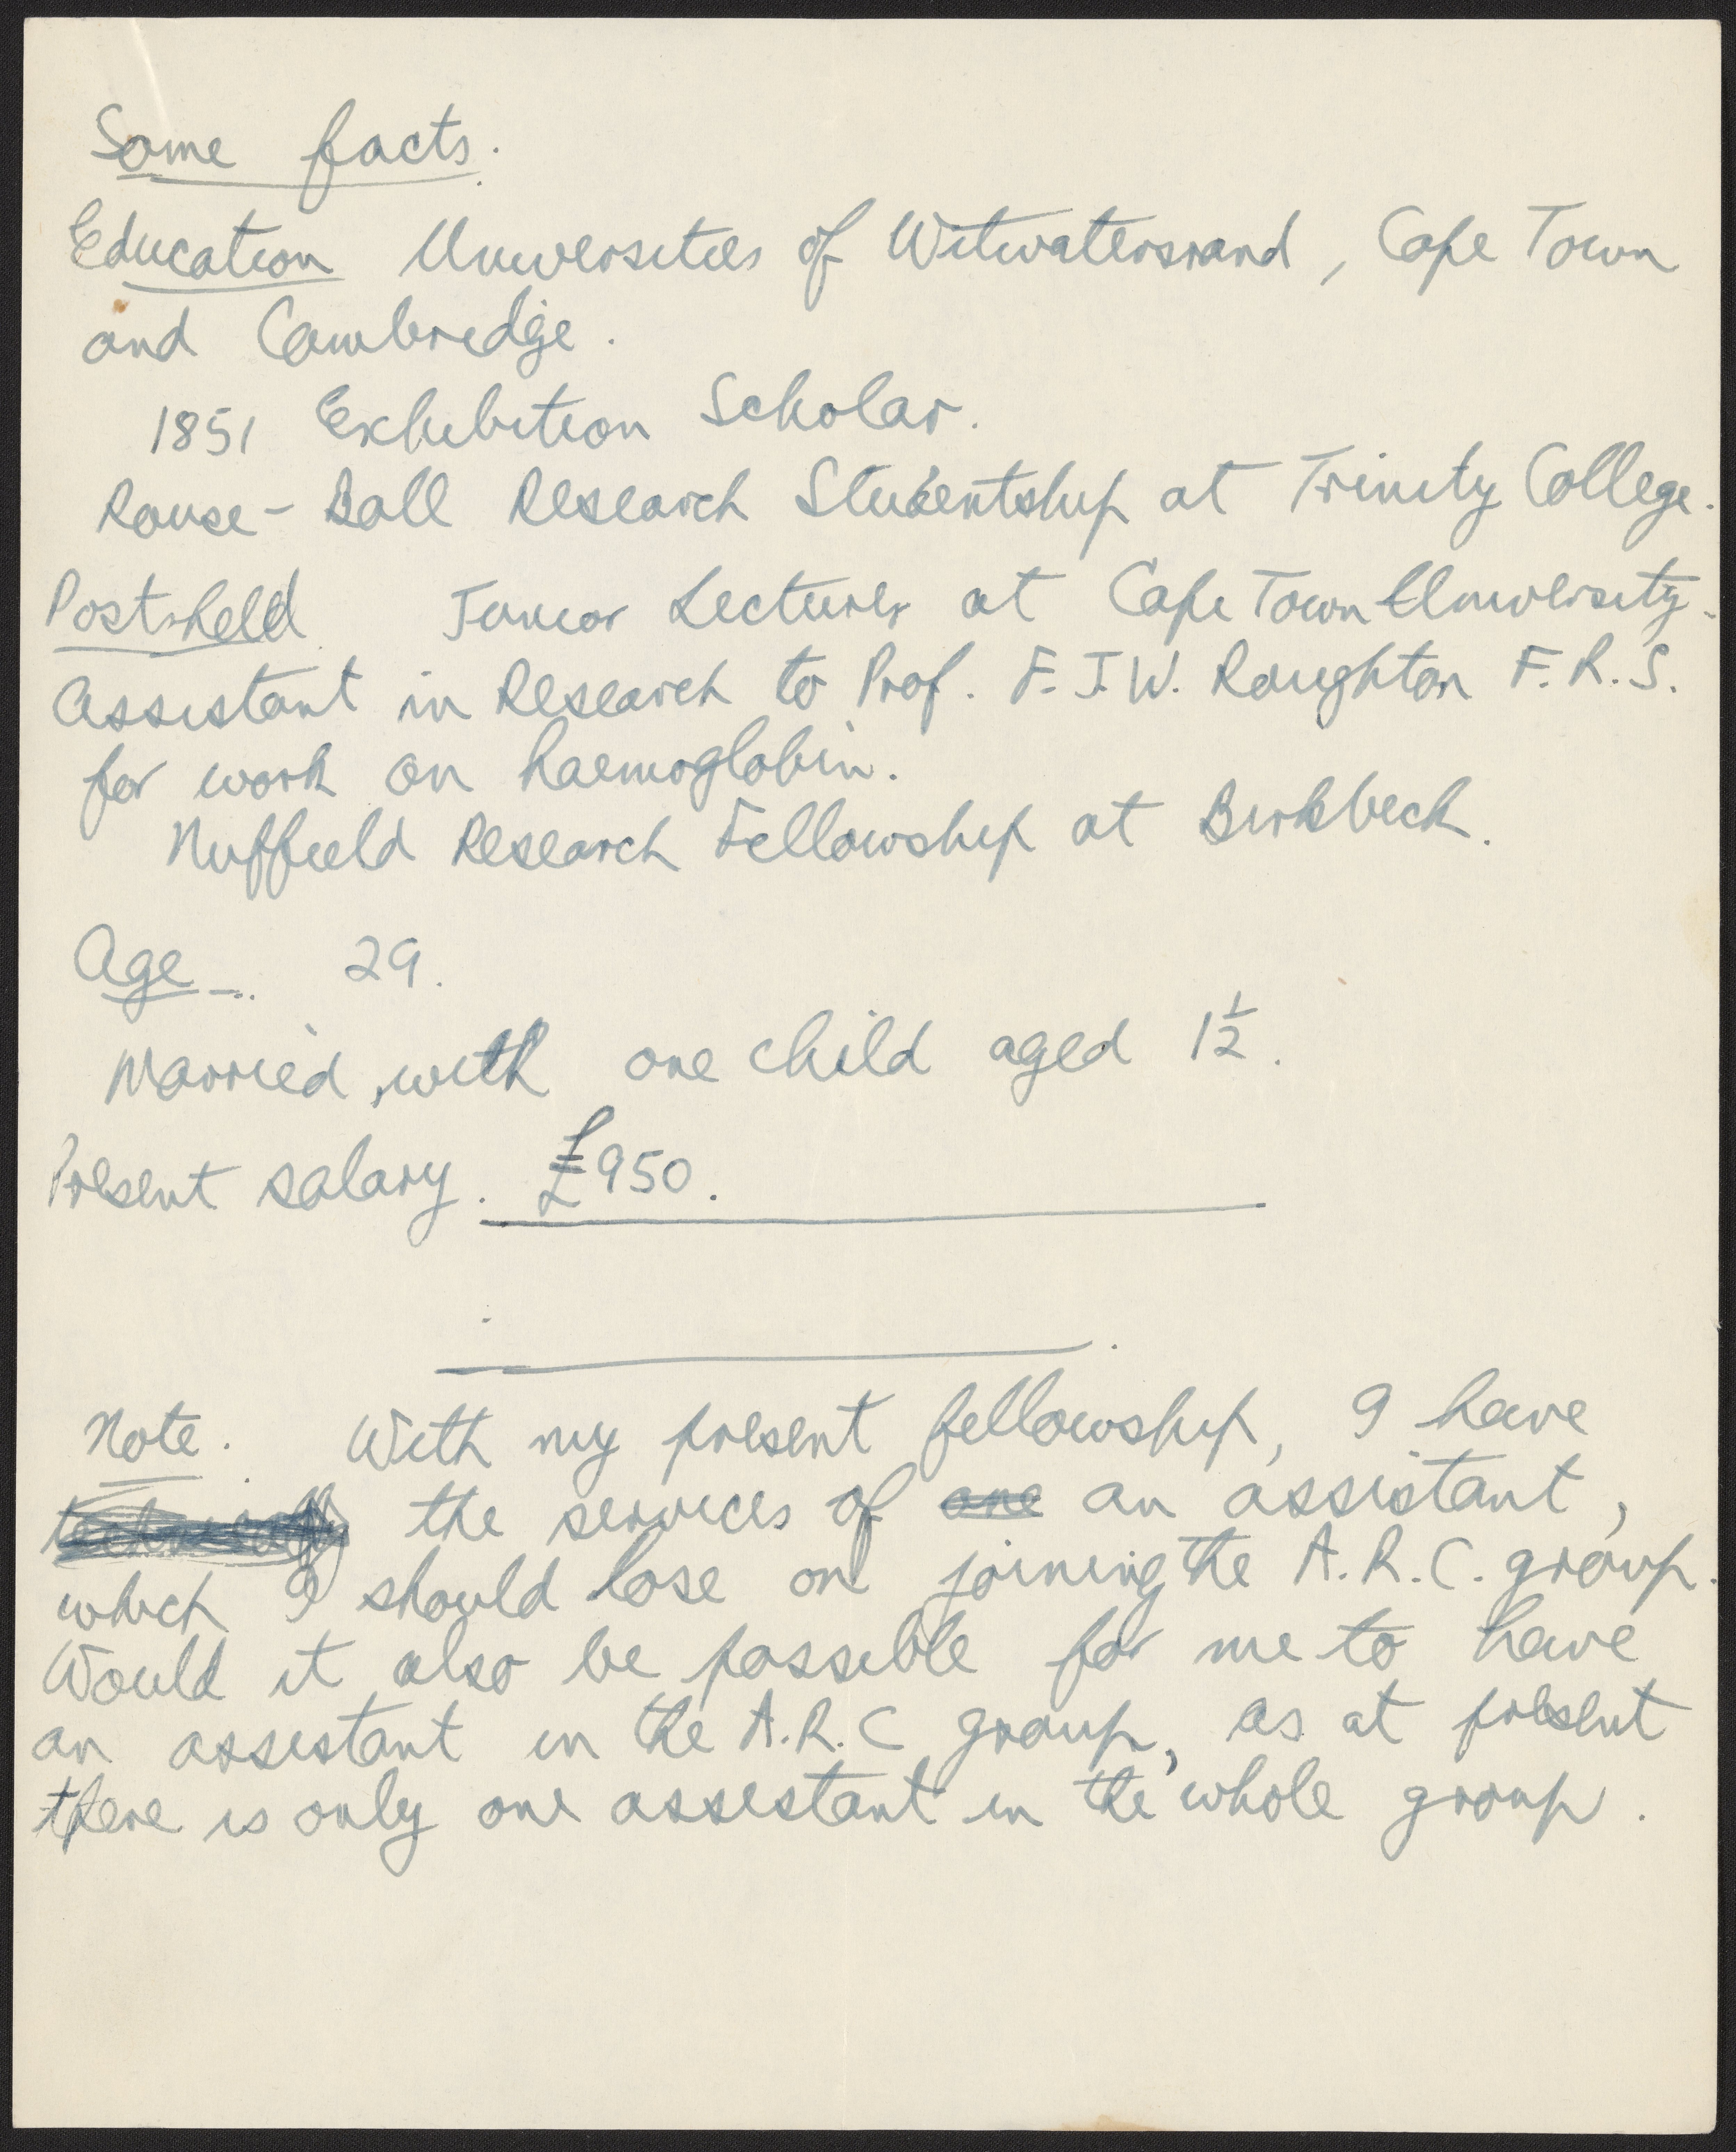 Some facts.
Education Universities of Witwatersrand, Cape Town
and Cambridge.
1851 Exhibition Scholar.
Rouse-Ball Research Studentship at Trinity College.
Posts held Junior Lecturer at Cape Town University.
Assistant in Research to Prof. F.J.W. Roughton F.R.S.
for work on haemoglobin.
Nuffield Research Fellowship at Birkbeck.
Age 29.
Married, with one child aged 1½.
Present salary. £950.
Note. With my present fellowship, I have
the services of one an assistant,
which I should lose on joining the A.R.C. group.
Would it also be possible for me to have
an assistant in the A.R.C group, as at present
there is only one assistant in the whole group.